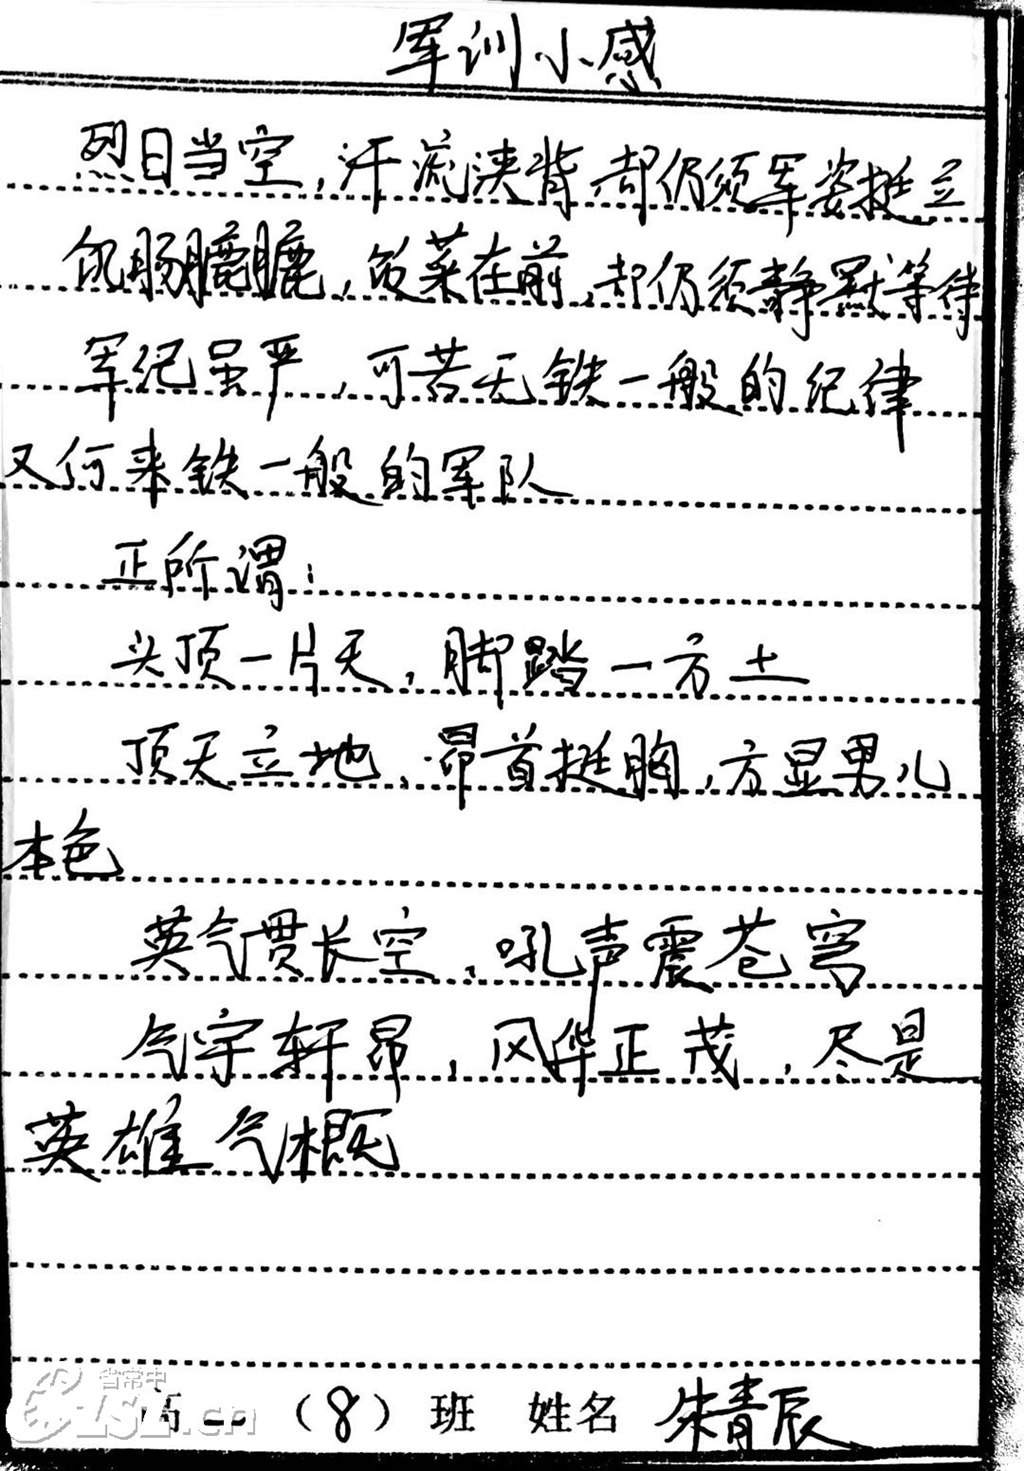 军训小感
烈日当空，汗流浃背，却仍须军姿挺立
饥肠辘辘，饭菜在前，却仍须静默等待
军纪虽严，可若无铁一般的纪律
又何来铁一般的军队
正所谓：
头顶一片天，脚踏一方土
顶天立地，昂首挺胸，方显男儿
本色
英气贯长空，吼声震苍穹
气宇轩昂，风华正茂，尽是
英雄气概
高一（8）班 姓名 朱青辰
省常中
.cn